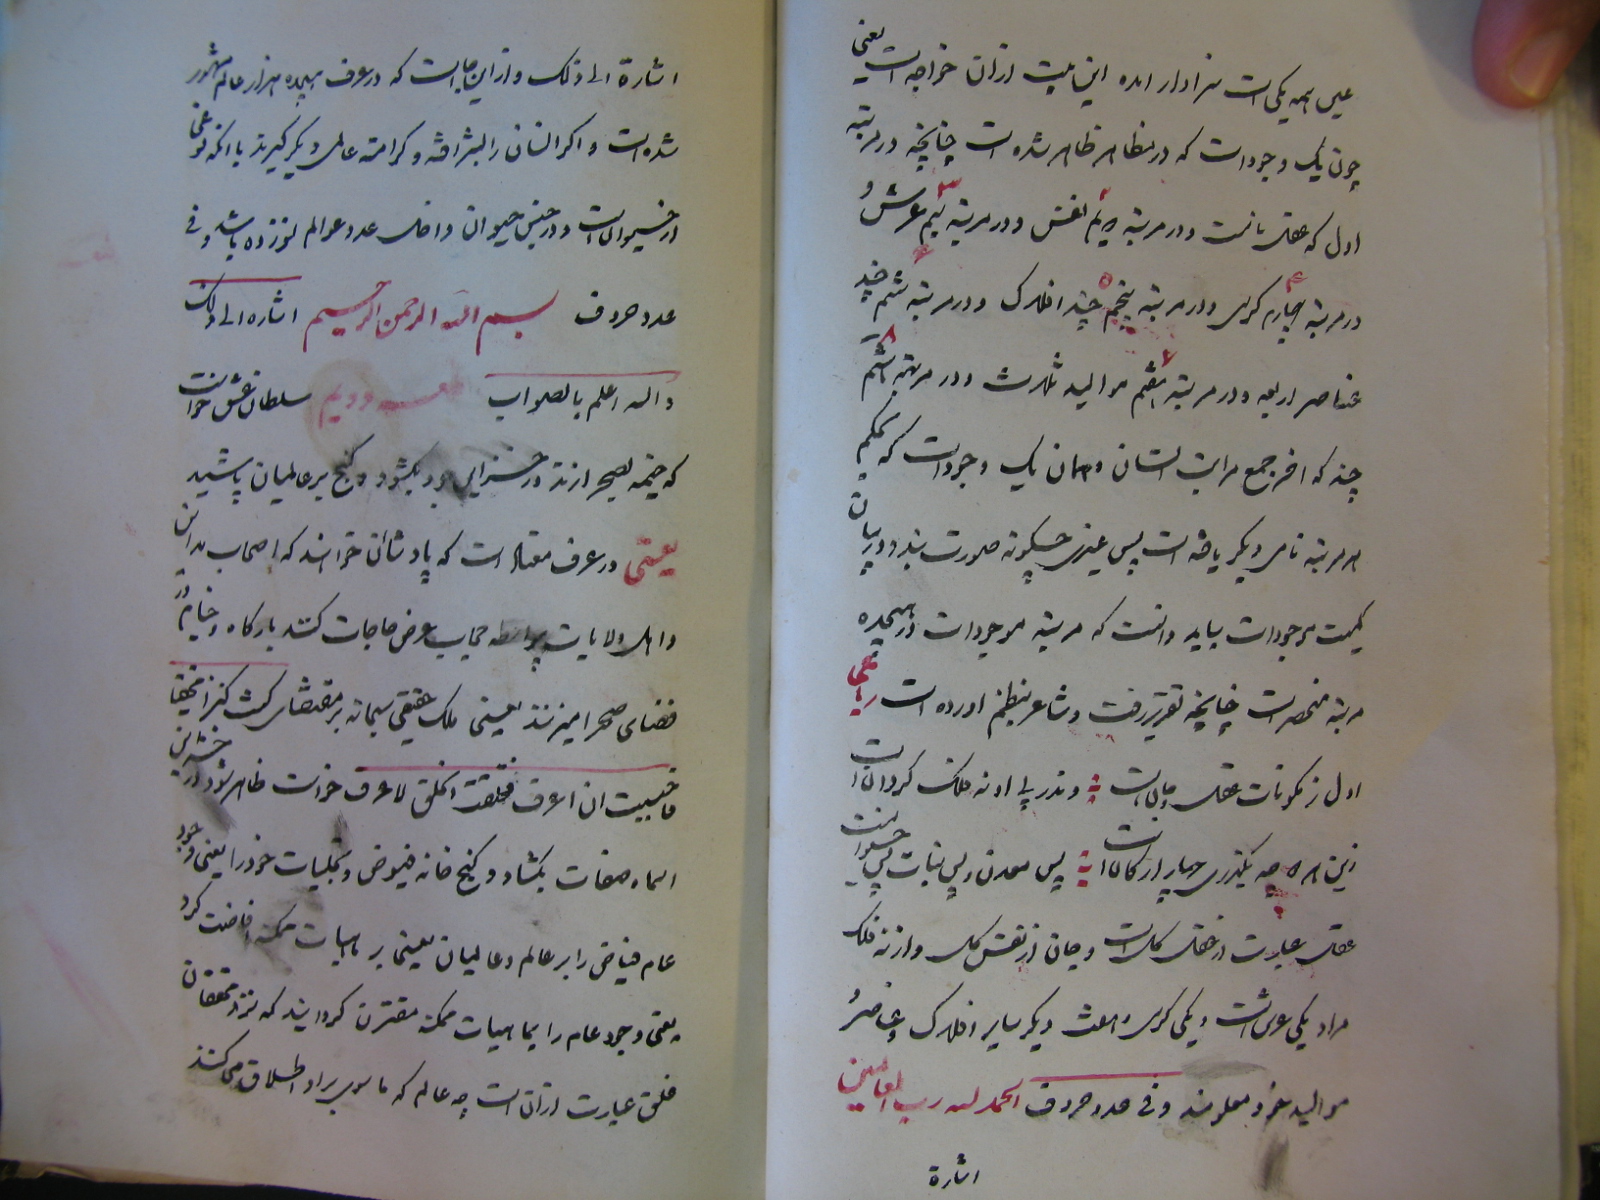 عین همه یکی است سزاوار امده این بیت ازان خواجه است یعنی
چون یک وجود است که در مظاهر ظاهر شده است چنانچه در مرتبه
اول که عقل بانست و در مرتبه دویم نفس و در مرتبه سیم عرش و
در مرتبه چهارم کرسی و در مرتبه پنجم چند افلاک و در مرتبه ششم چند
عناصر اربعه و در مرتبه هفتم موالید ثلاث و در مرتبه هشتم
چند که اخر جمع مراتب انسان و همان یک وجود است که بحکم
هر مرتبه نامی دیگر یافته است پس غیری چگونه صورت بندد و در بیان
کمیت موجودات بباید دانست که مرتبه موجودات در هیجده
مرتبه منحصر است چنانچه تقریر رفت و شاعر بنظم اورده است رباعی
اول ز مکونات عقل و جان است و ندر پی او نه فلک کردان است
زین هر چه بگذری چهار ارکان است پس معدن و پس نبات پس حیوانست
عقل عبارت از عقل کل است و جان از نفس کل و از نه فلک
مراد یکی عرش است و یکی کرسی و هفت دیگر سایر افلاک و عناصر و
موالید خود معلومند و فی عدد حروف الحمد لله رب العالمین
اشارة
اشارة الی ذلک و از این جاست که در عرف هیجده هزار عالم مشهور
شده است و اکر انسان را بشرافته و کرامته عالمی دیگر کیرند با انکه نوعی
از حیوان است و در جنس حیوان داخل عدد عوالم نوزده باشد و فی
عدد حروف بسم الله الرحمن الرحیم اشاره الی ذلک
والله اعلم بالصواب دویم سلطان عشق خواست
که خیمه بصحرا زند در خزاین بکشود و کنج بر عالمیان پاشید
یعنی در عرف معتاد است که پادشاهان خواهند که اصحاب مداین
و اهل ولایات بواسطه حجاب عرض حاجات کنند بارکاه و خیام در
فضای صحرا میزنند یعنی ملک حقیقی سبحانه بر مقتضای کنت کنزا مخفیا
فاحببت ان اعرف فخلقت الخلق لاعرف خواست ظاهر شود در خزاین
اسماء صفات بکشاد و کنج خانه فیوض و تجلیات خود را یعنی وجود
عام فیاض را بر عالم و عالمیان یعنی بر ماهیات ممکنه افاضت کرد
یعنی وجود عام را بماهیات ممکنه مقترن کردانید که نزد محققان
خلق عبارت ازان است چه عالم که ما سوی براو اطلاق می کنند